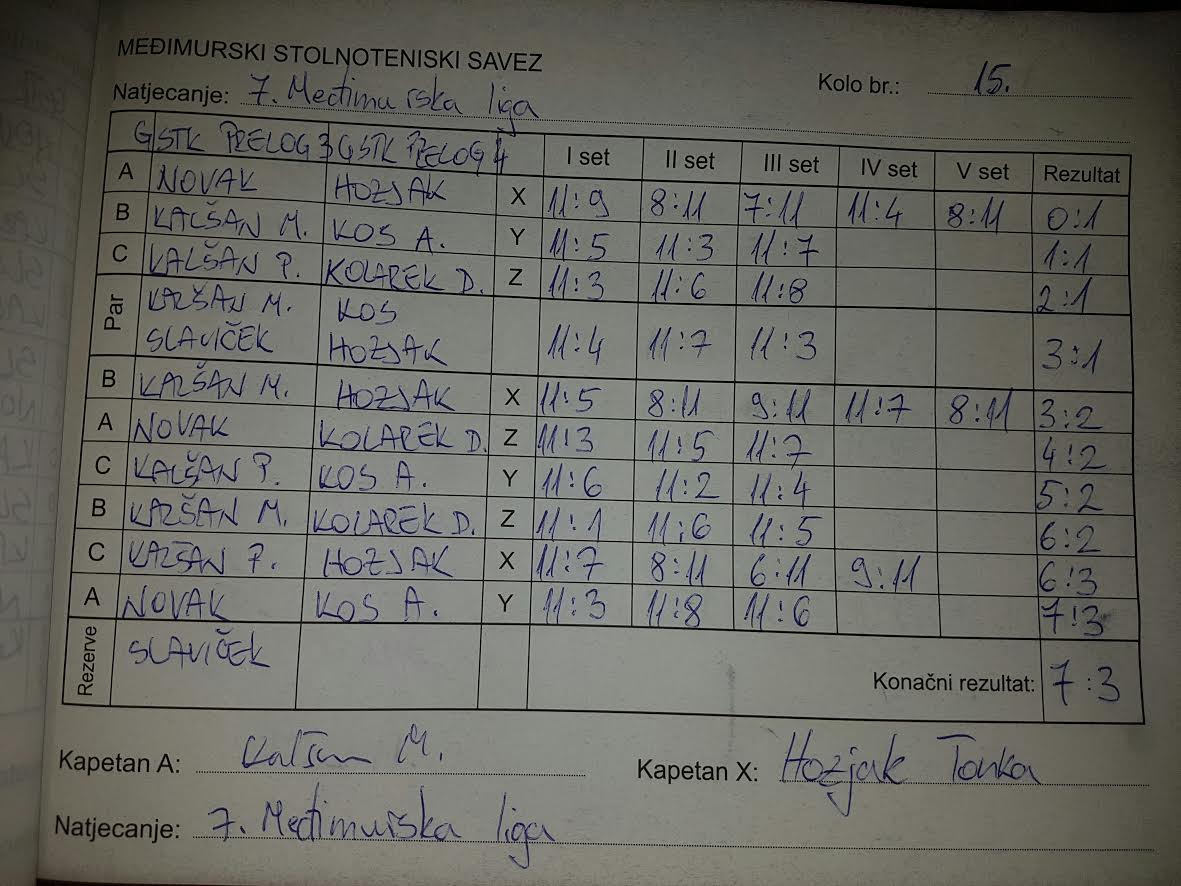 MEĐIMURSKI STOLNOTENISKI SAVEZ
Kolo br.: 15.
Natjecanje: 7. Međimurska liga
GSTK PRELOG 3 GSTK PRELOG 4 I set II set III set IV set V set Rezultat
A NOVAK HOZJAK X 11:9 8:11 7:11 11:4 8:11 0:1
B KALŠAN M. KOS A. Y 11:5 11:3 11:7 1:1
C KALŠAN P. KOLAREK D. Z 11:3 11:6 11:8 2:1
Par KALŠAN M. KOS
SLAVIČEK HOZJAK 11:4 11:7 11:3 3:1
B KALŠAN M. HOZJAK X 11:5 8:11 9:11 11:7 8:11 3:2
A NOVAK KOLAREK D. Z 11:3 11:5 11:7 4:2
C KALŠAN P. KOS A. Y 11:6 11:2 11:4 5:2
B KALŠAN M. KOLAREK D. Z 11:1 11:6 11:5 6:2
C KALŠAN P. HOZJAK X 11:7 8:11 6:11 9:11 6:3
A NOVAK KOS A. Y 11:3 11:8 11:6 7:3
Rezerve SLAVIČEK
Konačni rezultat: 7:3
Kapetan A: Kalšan M. Kapetan X: Hozjak Tonka
Natjecanje: 7. Međimurska liga